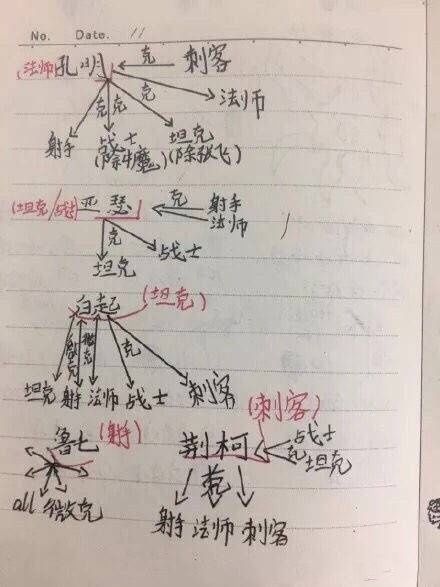 No. Date. 11
(法师)孔明 克 刺客
克 克 克 法师
射手 战士 坦克
(除牛魔) (除张飞)
(坦克/战士)亚瑟 克 射手
法师
克 战士
坦克
白起 (坦克)
微克 微克 克
坦克 射手 法师 战士 刺客
鲁七 (射手) 荆柯 (刺客)
克 战士
坦克
克
all 微克
射手 法师 刺客